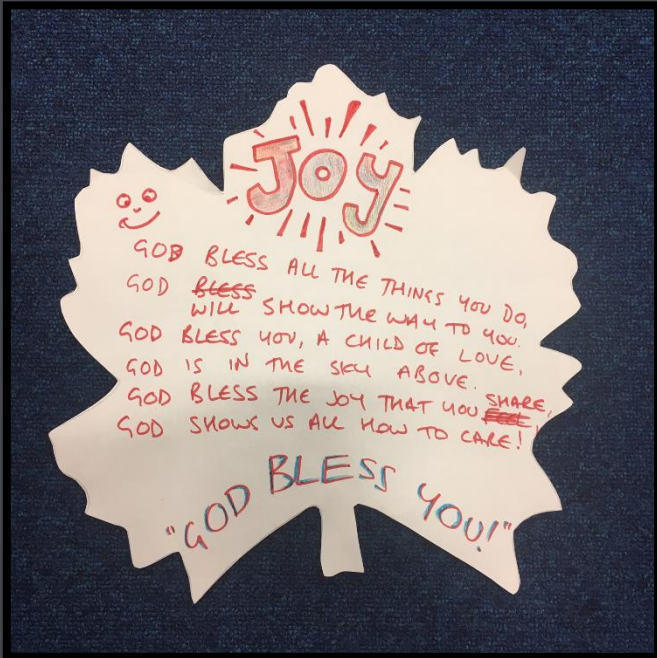 JOY
GOD BLESS ALL THE THINGS YOU DO,
GOD BLESS
WILL SHOW THE WAY TO YOU.
GOD BLESS YOU, A CHILD OF LOVE,
GOD IS IN THE SKY ABOVE.
GOD BLESS THE JOY THAT YOU SHARE,
GOD SHOWS US ALL HOW TO CARE!
"GOD BLESS YOU!"